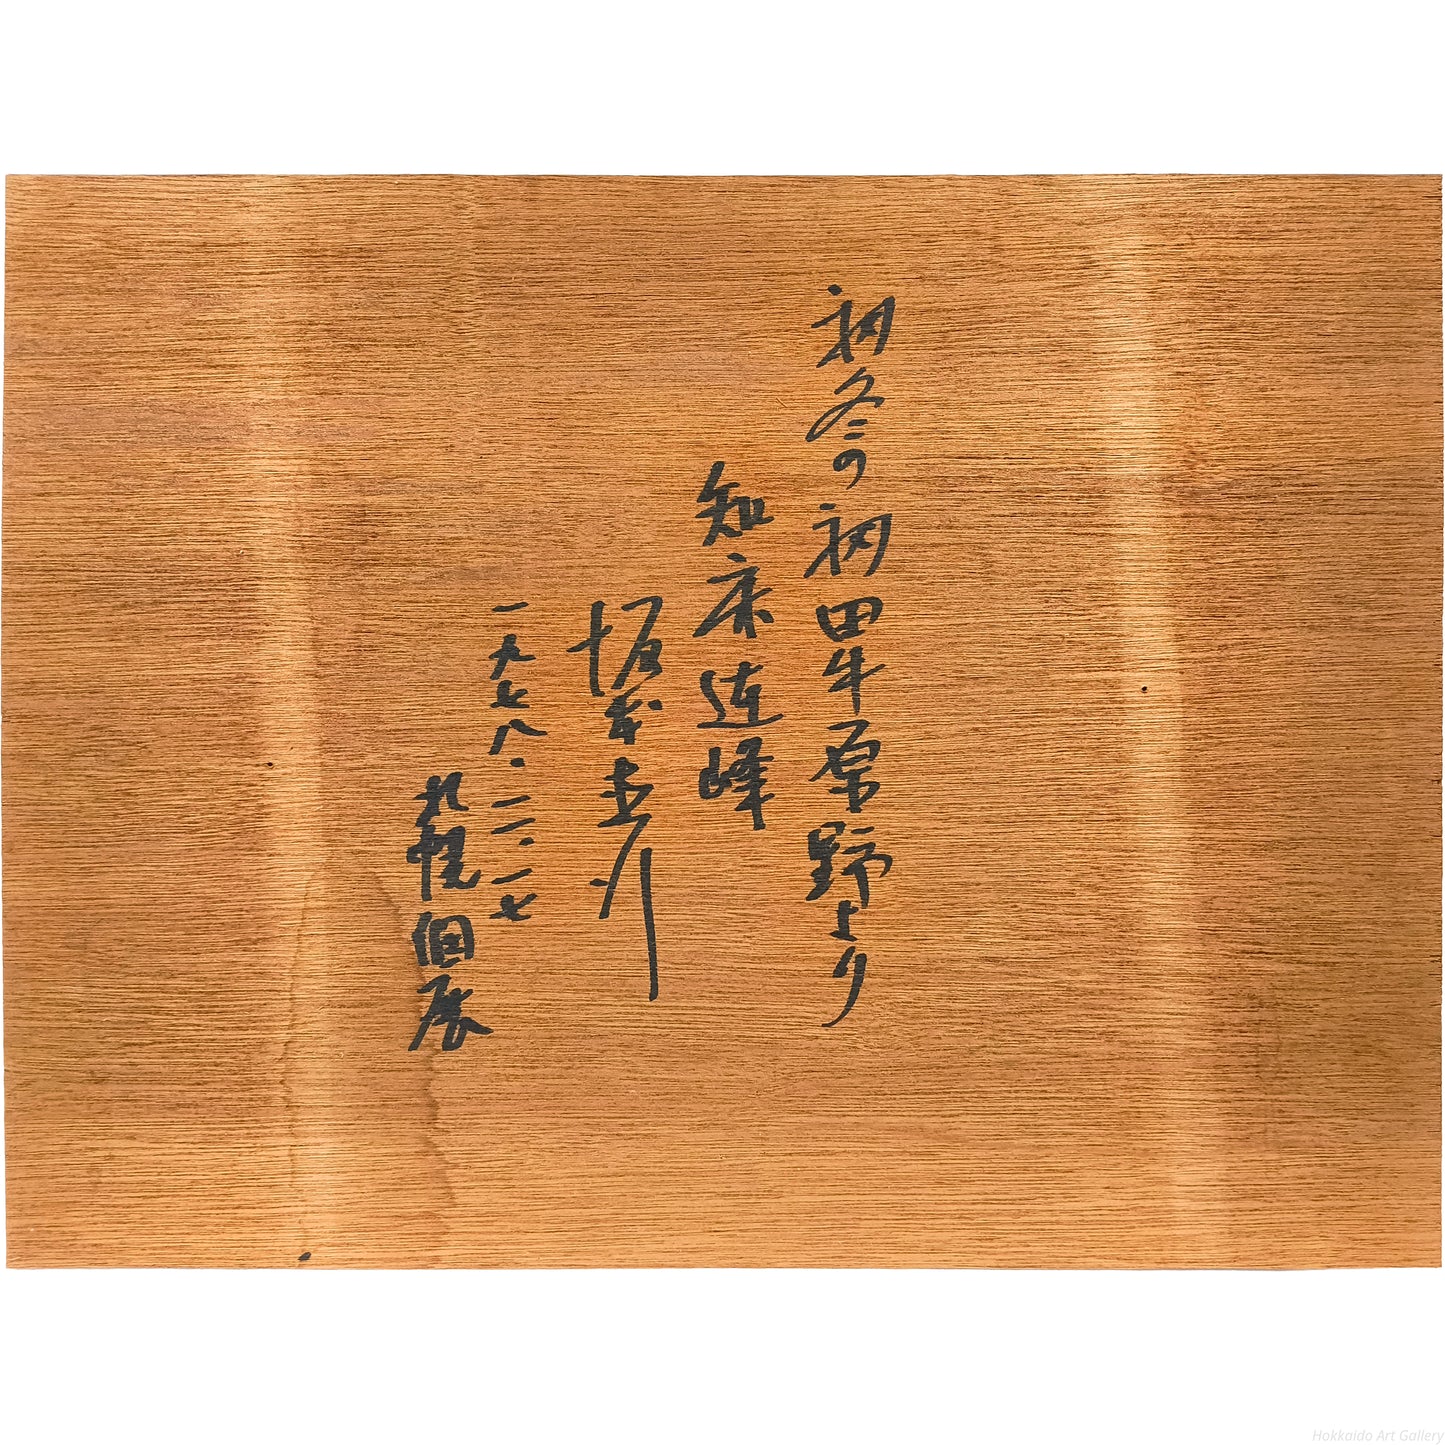 初冬の初田牛原野より
知床連峰
坂本直行
一九七八・一一・一七
札幌個展
Hokkaido Art Gallery